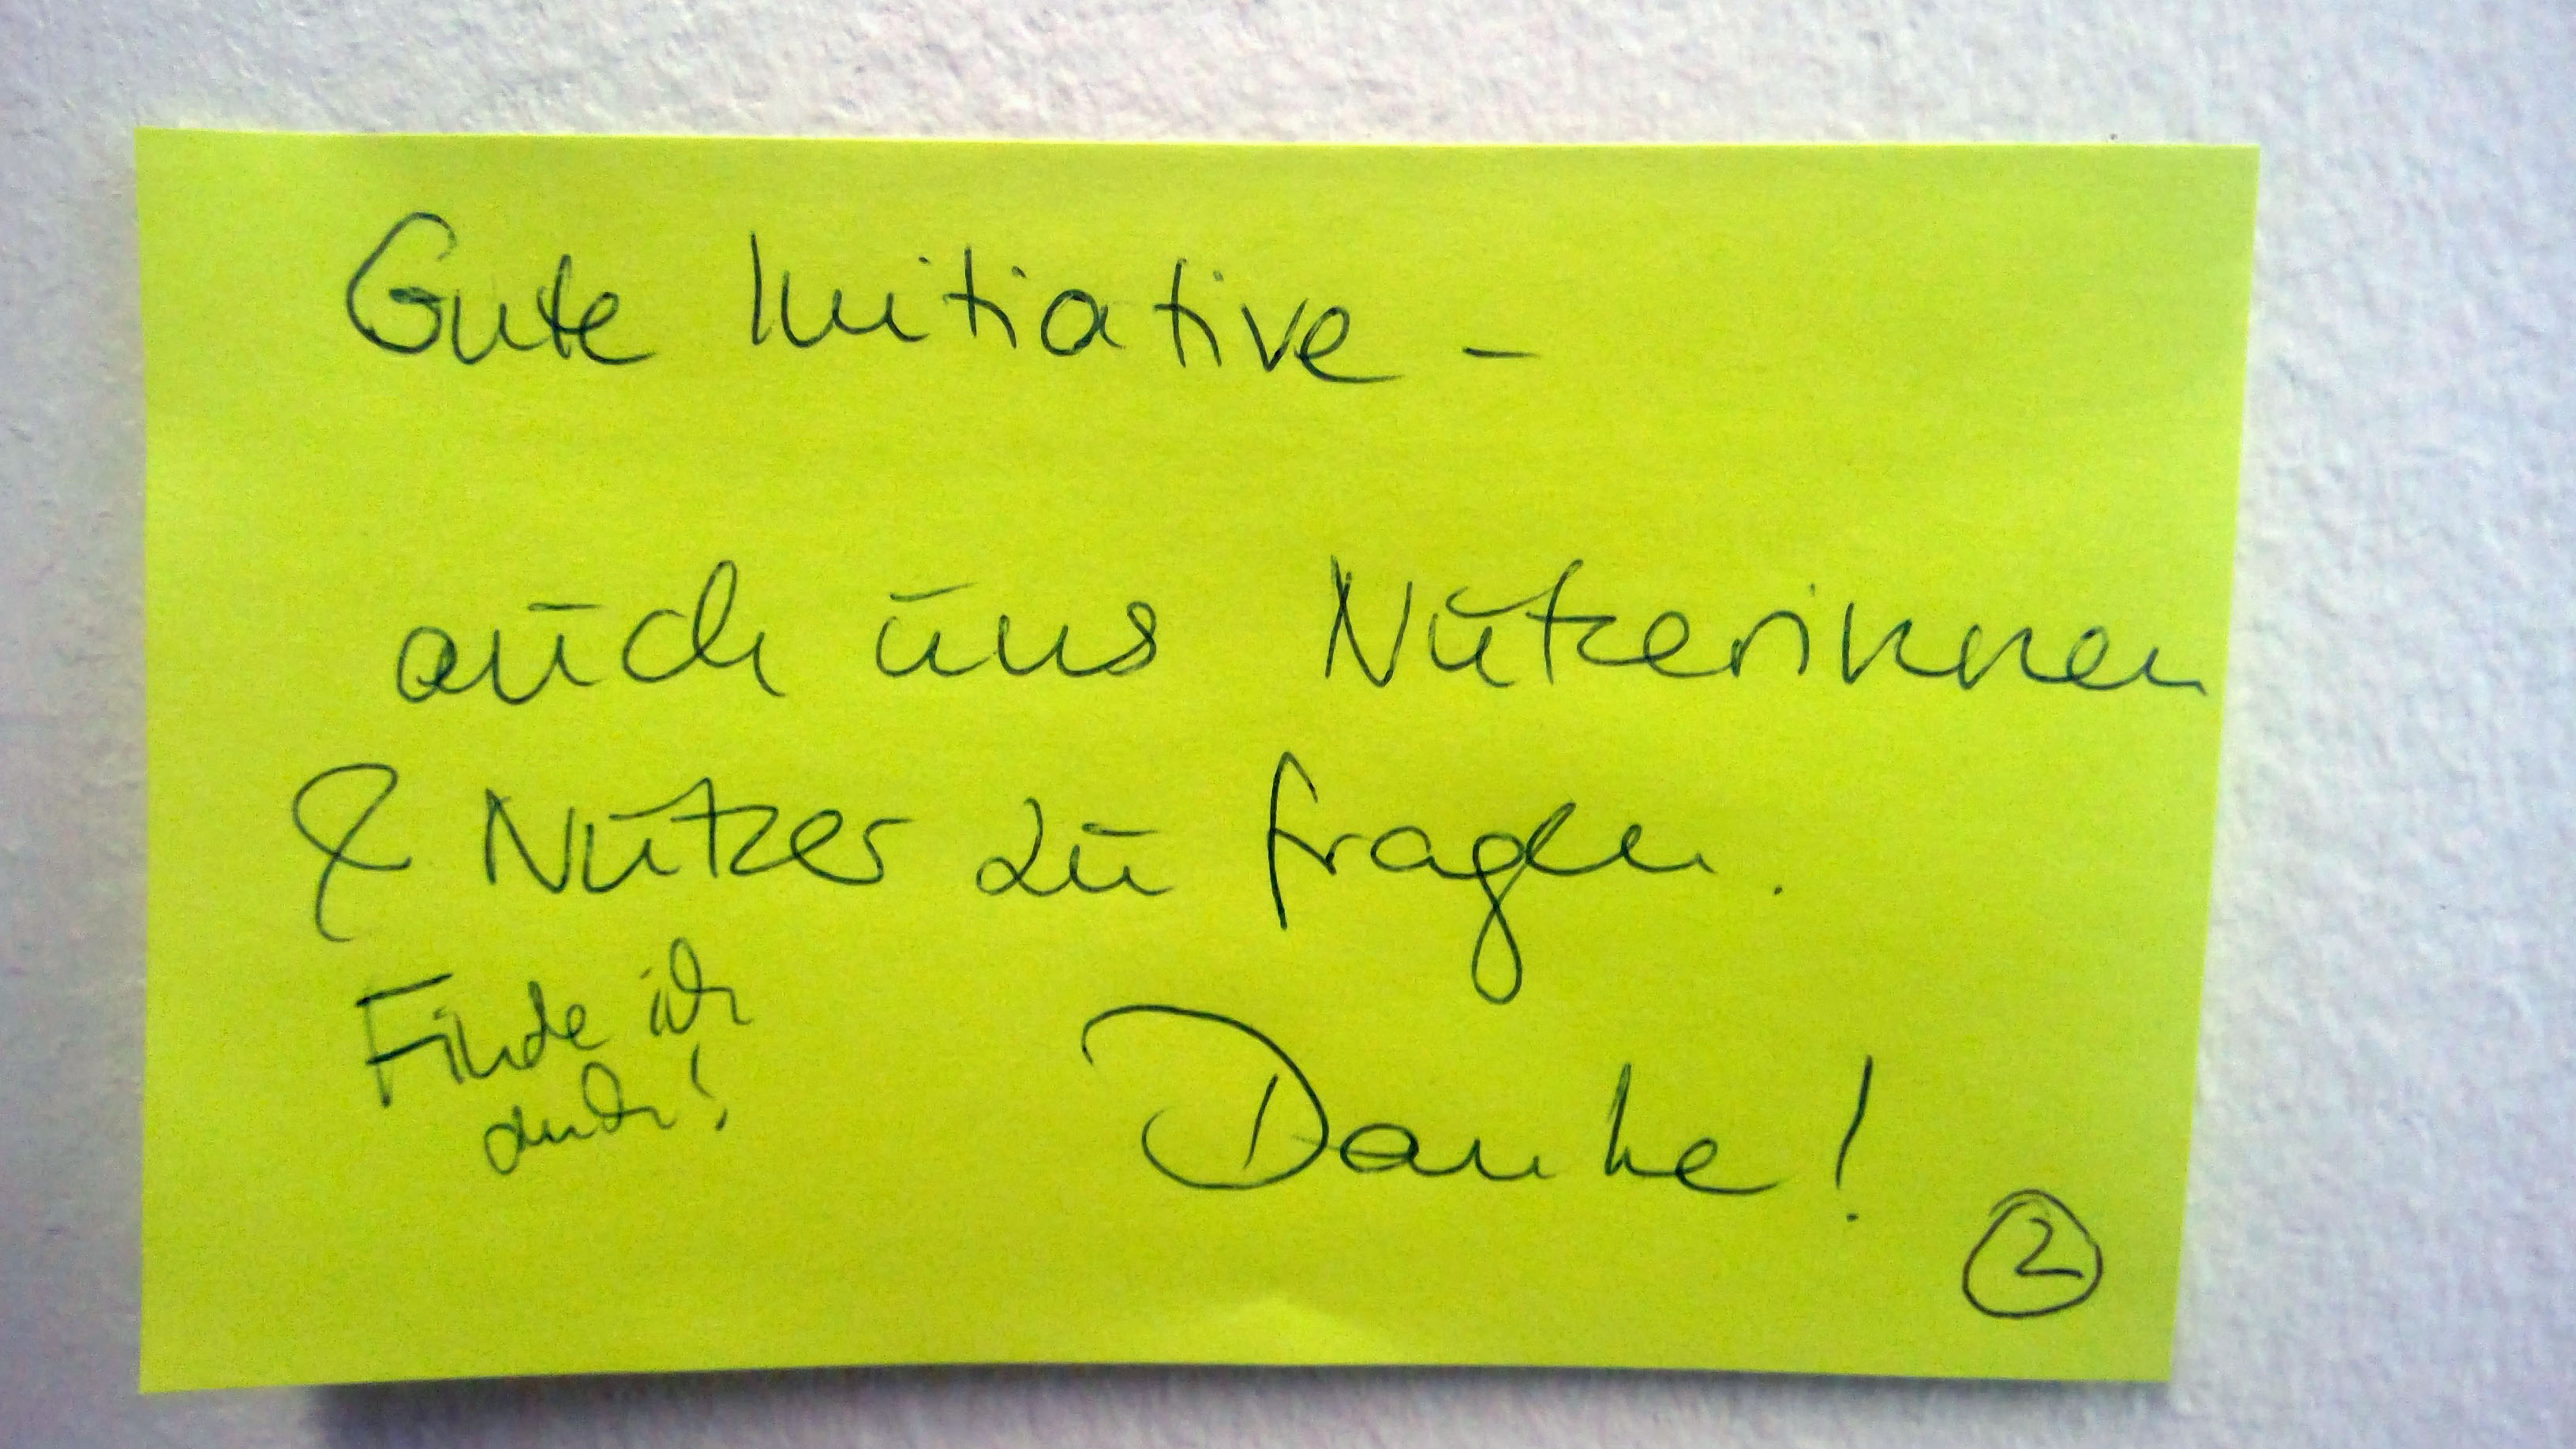 Gute Initiative –
auch uns Nutzerinnen
& Nutzer zu fragen.
Finde ich
auch!
Danke!
2